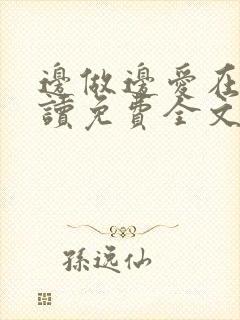 邊做邊愛在
讀免費全文
孫逸仙